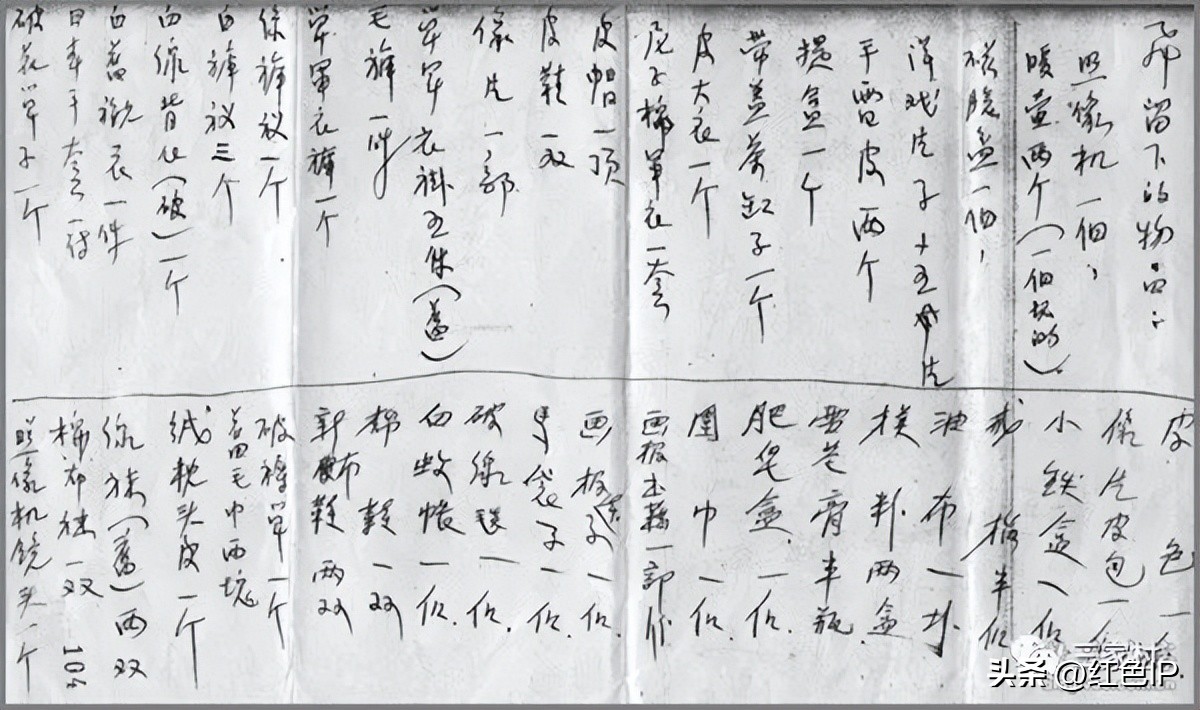 留下的物品：
照像机一個，
暖壶两个（一個坏的）。
磁脸盆一個，
洋戏片子十五片
干两皮两个
提盒一个
带盖茶缸子一个
皮大衣一个
尼子棉军衣一套
皮帽一顶
皮鞋一双
像片一部
单军衣褂五件（旧）
毛裤一件
单军衣裤一个
绿裤衩一个
白裤衩三个
白绿背心（破）一个
白旧衬衣一件
日本千套一付
破花单子一个
皮色一
像片皮包一
小铁盒一
戒指半
油布一块
扑
牙膏半瓶
肥皂盒一個.
围巾一個.
画报书籍一部
画板子一個.
袋子一個.
破绿毯一個.
白蚊帐一個.
棉鞋一双
新布鞋两双
破裤单一个
旧毛巾两块
绒枕头皮一个
线袜（旧）两双
棉布袜一双
照像机镜头一个
104
三家村
头条 @红色IP